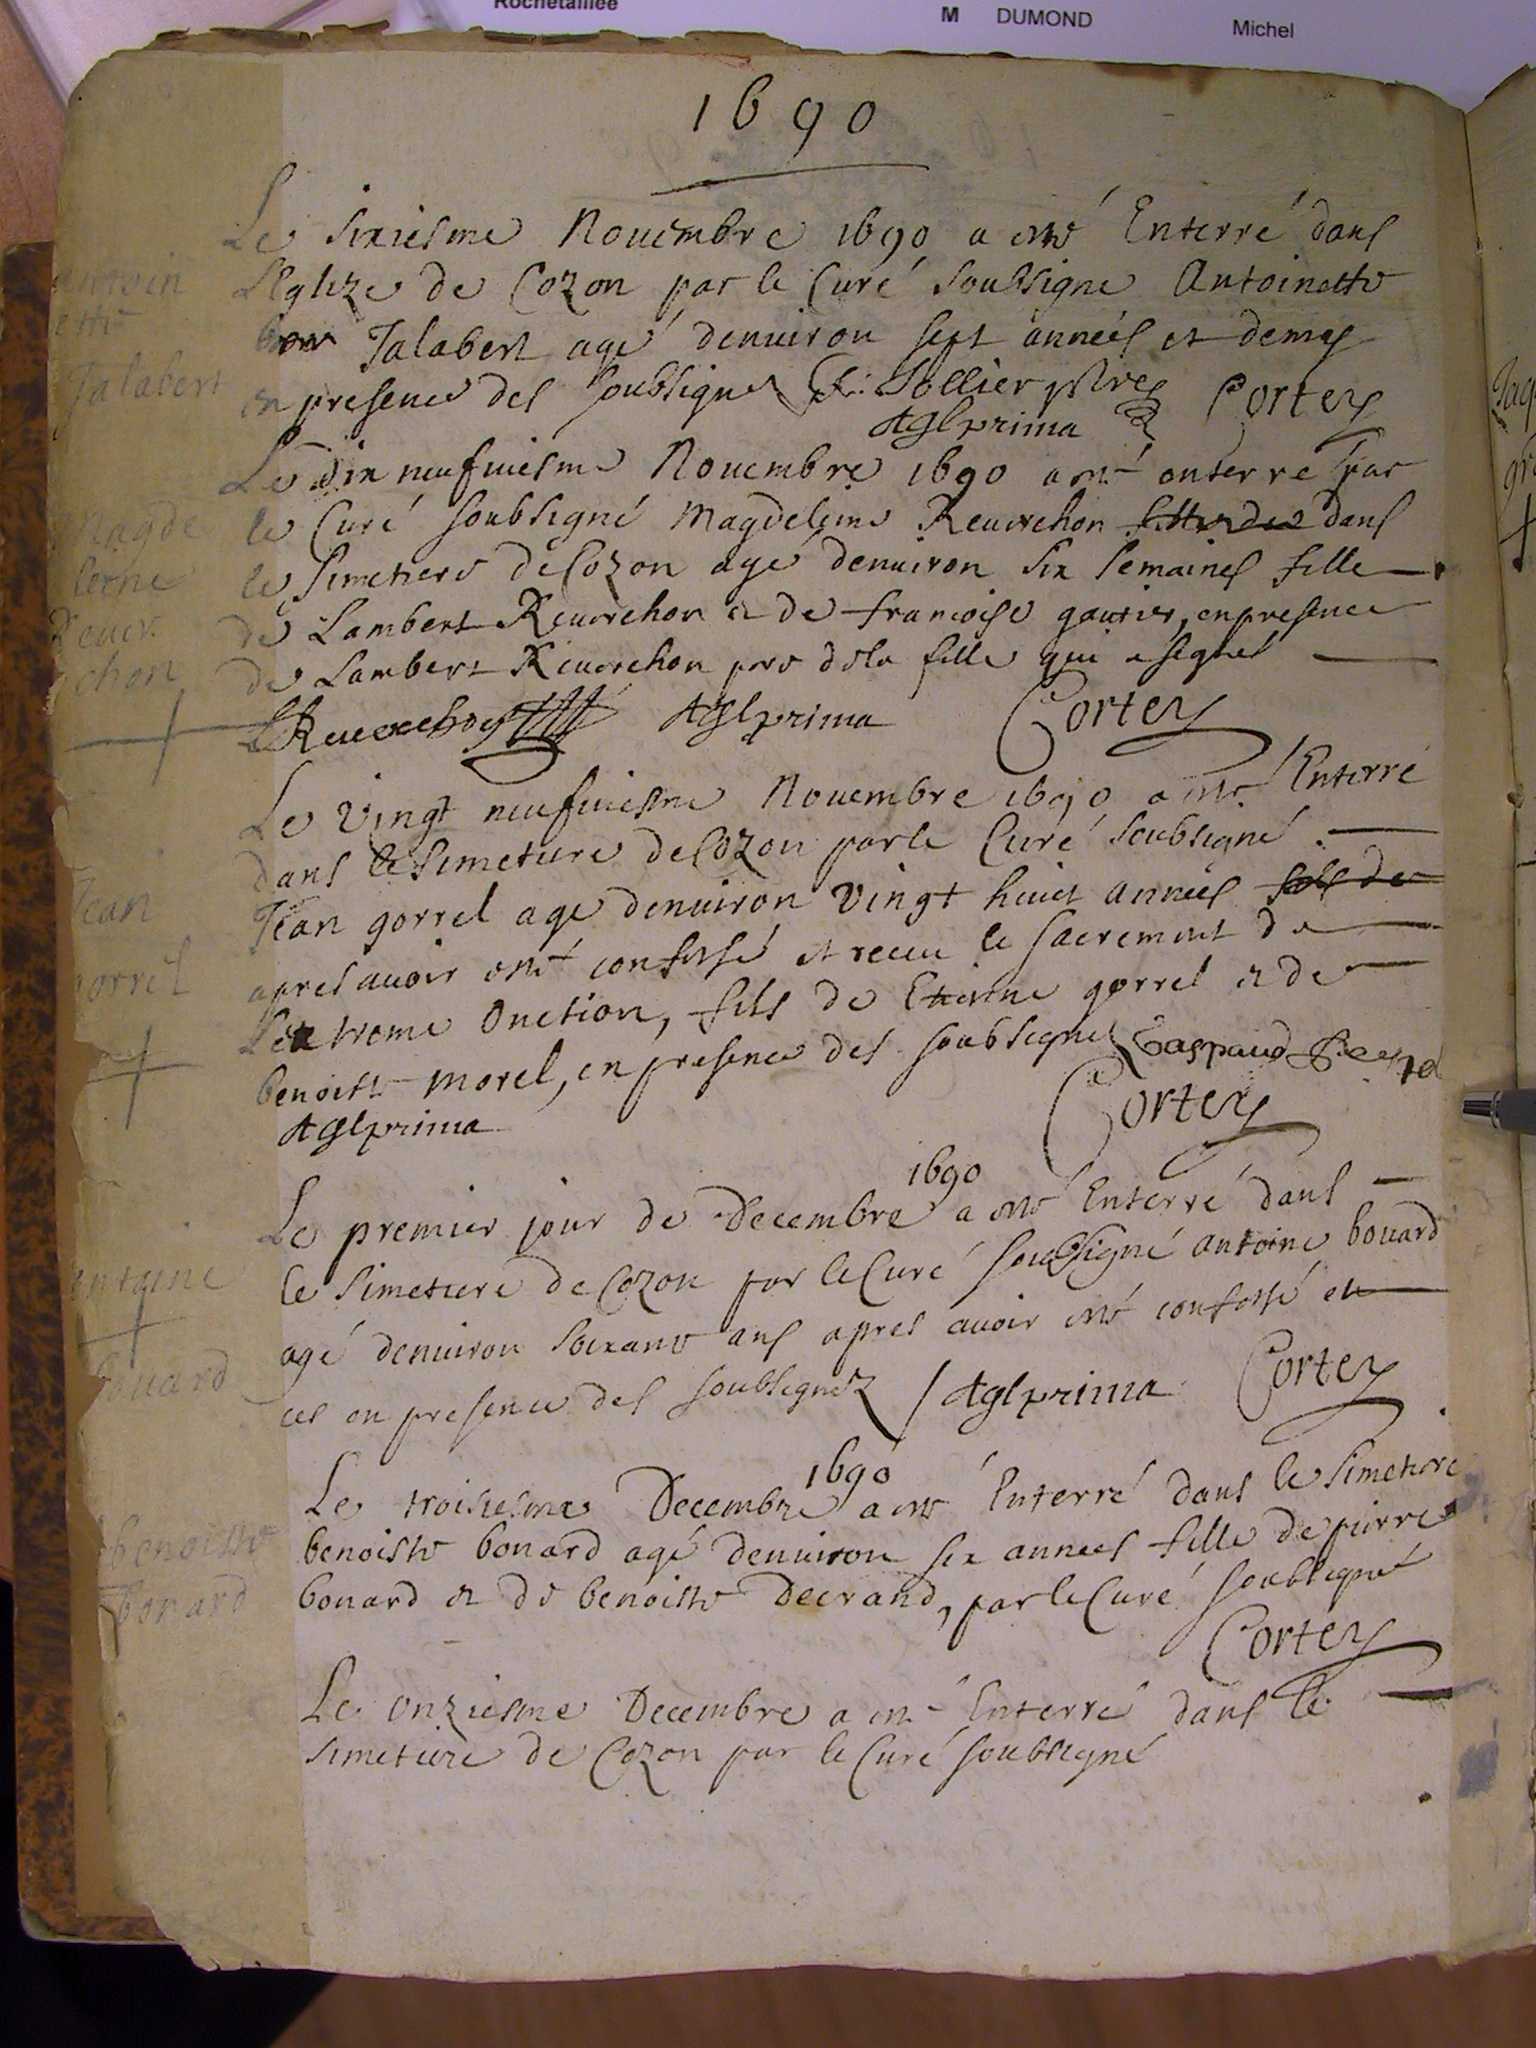 Rochetaillée
M DUMOND Michel
1690
Le sixiesme Nouembre 1690 a esté Enterré dans
L'Eglize de Cozon par le Curé soubsigne Antoinette
Jalabert agé denuiron sept années et demy
en presence des soubsignez Sollier
Aglprima Cortey
Le Dix neufuiesme Nouembre 1690 a esté enterré par
le Curé soubsigné Magdeleine Reuerchon dans
le Simetiere de Cozon agé denuiron six semaines fille
de Lambert Reuerchon et de francoise gautier, en presence
de Lambert Reuerchon pere dela fille qui a signé
LReuerchon Aglprima Cortey
Le Vingt neufuiesme Nouembre 1690 a esté Enterré
dans le Simetiere de Cozon par le Curé soubsigné
Jean gorrel agé denuiron Vingt huict années fils de
apres auoir esté confessé et receu le sacrement de
L'extreme Onction, fils de Etienne gorrel et de
benoiste morel, en presence des soubsignez Gaspard
Aglprima Cortey
1690
Le premier jour de Decembre a esté Enterré dans
le Simetiere de Cozon par le Curé soubsigné antoine bouard
agé denuiron soixante ans apres auoir esté confessé et
ces en presence des soubsignez / Aglprima Cortey
1690
Le troisiesme Decembre a esté Enterré dans le simetiere
benoiste bouard agé denuiron six annees fille de pierre
bouard et de benoiste Decrand, par le Curé soubsigné
Cortey
Le Onziesme Decembre a esté Enterré dans le
simetiere de Cozon par le Curé soubsigné
antoin
ette
Jalabert
Magde
leine
Reuer
chon
Jean
gorrel
antoine
bouard
benoiste
bouard